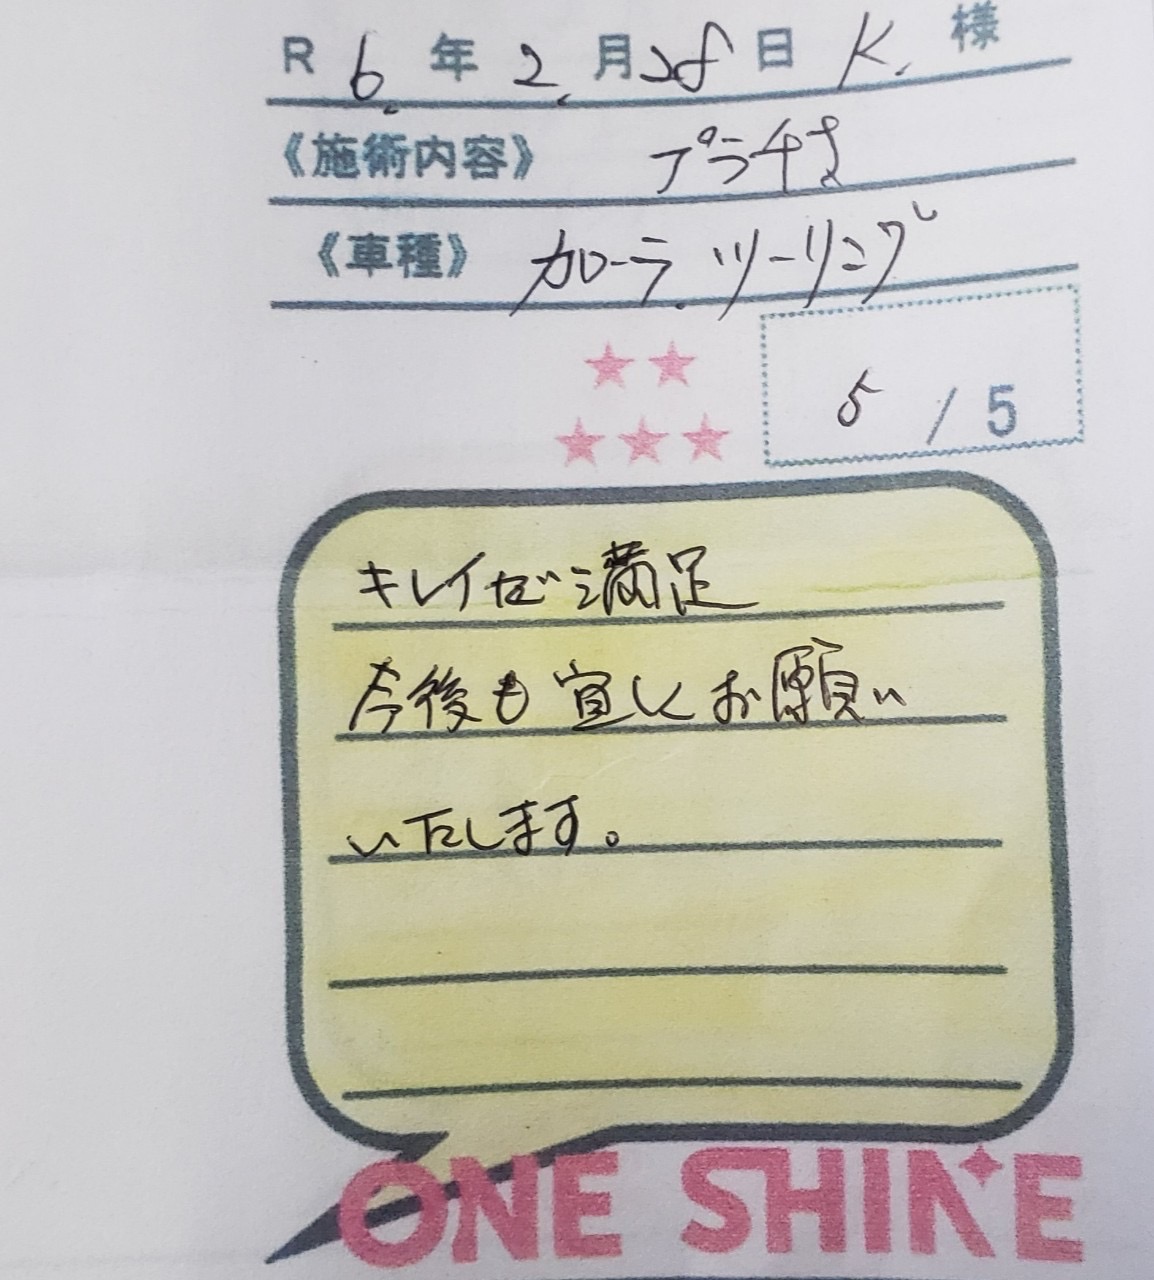 R 6. 年 2. 月 28 日 K. 様
《施術内容》 プラチナ
《車種》 カローラ.ツーリング
5 / 5
キレイで満足
今後も宜しくお願い
いたします。
ONE SHINE